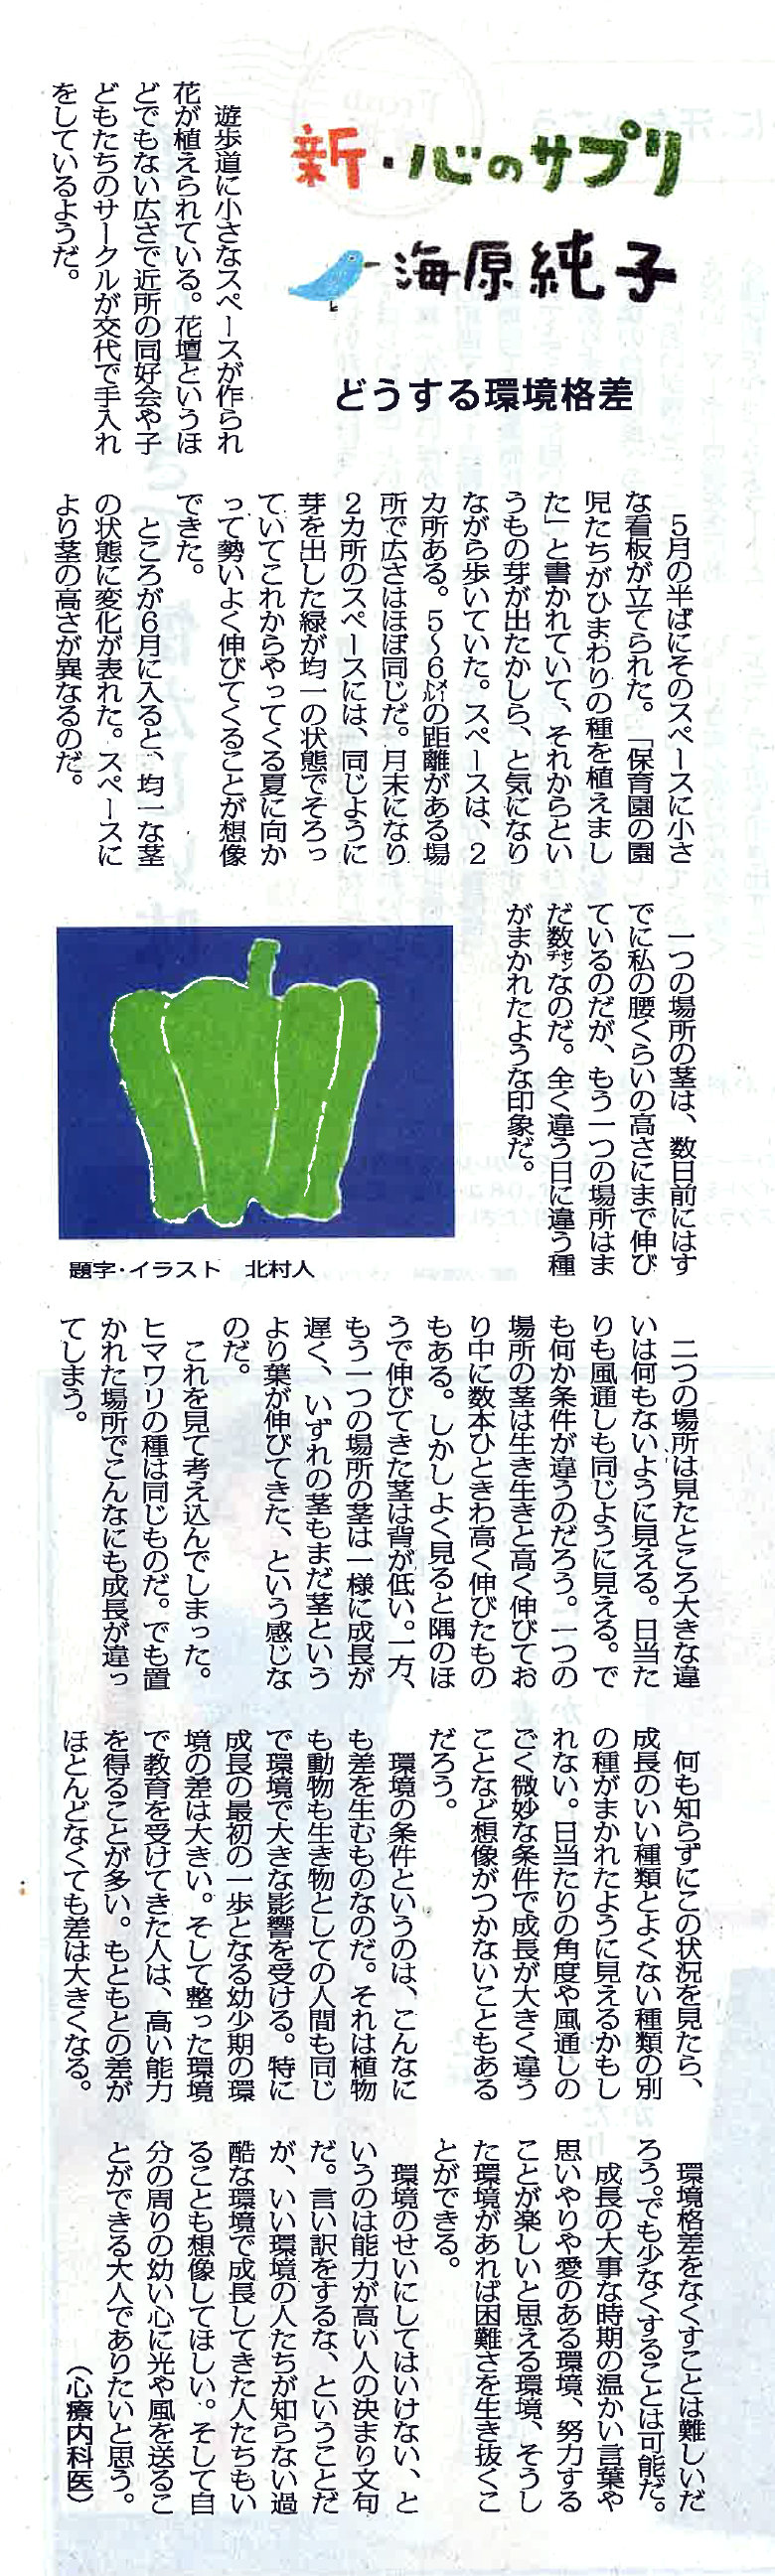 新・心のサプリ
海原純子
どうする環境格差
遊歩道に小さなスペースが作られ
花が植えられている。花壇というほ
どでもない広さで近所の同好会や子
どもたちのサークルが交代で手入れ
をしているようだ。
5月の半ばにそのスペースに小さ
な看板が立てられた。「保育園の園
児たちがひまわりの種を植えまし
た」と書かれていて、それからとい
うもの芽が出たかしら、と気になり
ながら歩いていた。スペースは、2
カ所ある。5〜6㍍の距離がある場
所で広さはほぼ同じだ。月末になり
2カ所のスペースには、同じように
芽を出した緑が均一の状態でそろっ
ていてこれからやってくる夏に向か
って勢いよく伸びてくることが想像
できた。
ところが6月に入ると、均一な茎
の状態に変化が表れた。スペースに
より茎の高さが異なるのだ。
一つの場所の茎は、数日前にはす
でに私の腰くらいの高さにまで伸び
ているのだが、もう一つの場所はま
だ数㌢なのだ。全く違う日に違う種
がまかれたような印象だ。
題字・イラスト　北村人
二つの場所は見たところ大きな違
いは何もないように見える。日当た
りも風通しも同じように見える。で
も何か条件が違うのだろう。一つの
場所の茎は生き生きと高く伸びてお
り中に数本ひときわ高く伸びたもの
もある。しかしよく見ると隅のほ
うで伸びてきた茎は背が低い。一方、
もう一つの場所の茎は一様に成長が
遅く、いずれの茎もまだ茎という
より葉が伸びてきた、という感じな
のだ。
これを見て考え込んでしまった。
ヒマワリの種は同じものだ。でも置
かれた場所でこんなにも成長が違っ
てしまう。
何も知らずにこの状況を見たら、
成長のいい種類とよくない種類の別
の種がまかれたように見えるかもし
れない。日当たりの角度や風通しの
ごく微妙な条件で成長が大きく違う
ことなど想像がつかないこともある
だろう。
環境の条件というのは、こんなに
も差を生むものなのだ。それは植物
も動物も生き物としての人間も同じ
で環境で大きな影響を受ける。特に
成長の最初の一歩となる幼少期の環
境の差は大きい。そして整った環境
で教育を受けてきた人は、高い能力
を得ることが多い。もともとの差が
ほとんどなくても差は大きくなる。
環境格差をなくすことは難しいだ
ろう。でも少なくすることは可能だ。
成長の大事な時期の温かい言葉や
思いやりや愛のある環境、努力する
ことが楽しいと思える環境、そうし
た環境があれば困難さを生き抜くこ
とができる。
環境のせいにしてはいけない、と
いうのは能力が高い人の決まり文句
だ。言い訳をするな、ということだ
が、いい環境の人たちが知らない過
酷な環境で成長してきた人たちもい
ることも想像してほしい。そして自
分の周りの幼い心に光や風を送るこ
とができる大人でありたいと思う。
（心療内科医）